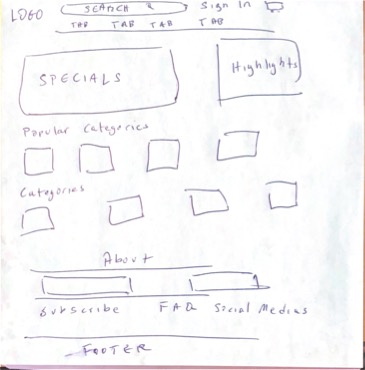 LOGO SEARCH Sign In
TAB TAB TAB TAB
SPECIALS Highlights
Popular Categories
Categories
About
Subscribe FAQ Social Medias
FOOTER